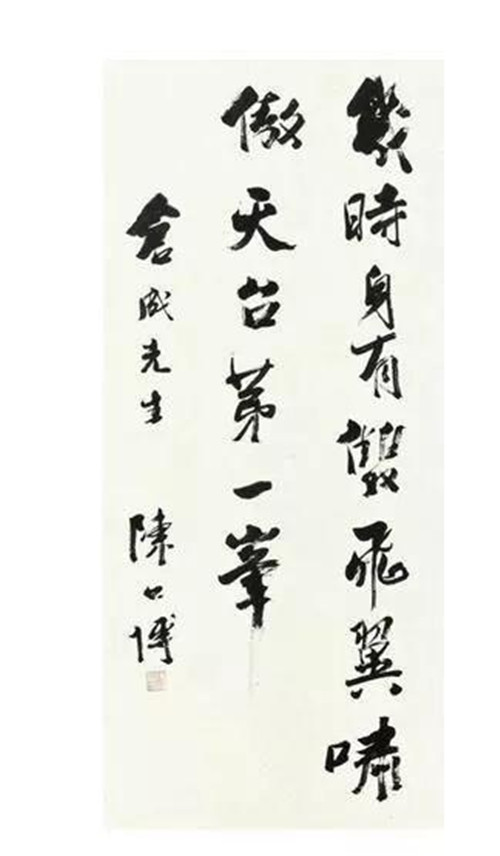 幾時身有雙飛翼嘯
傲天台第一峯
倉成先生 陳公博